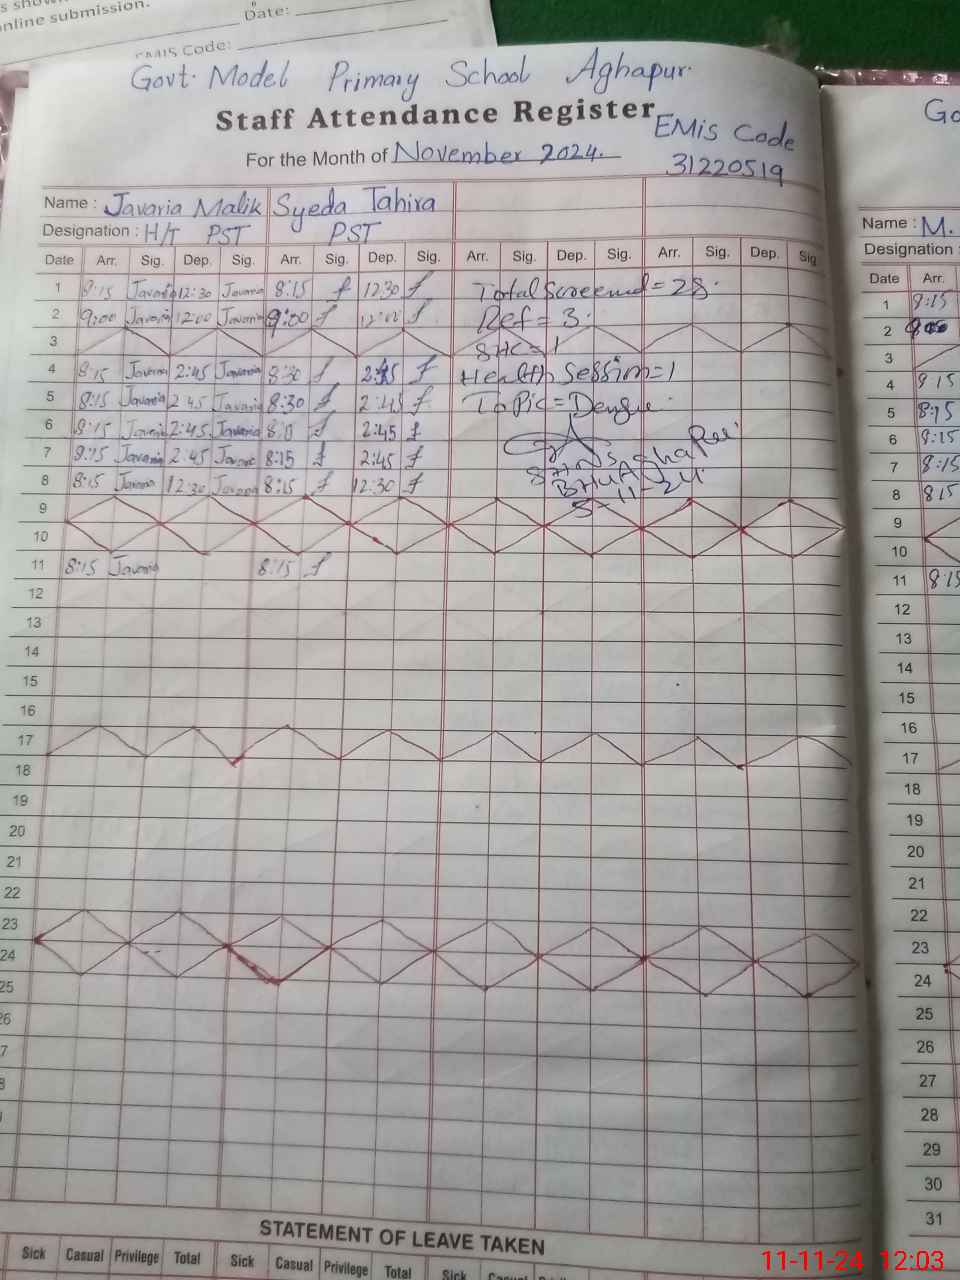 nline submission.
Date:
EMIS Code:
Govt. Model Primary School Aghapur.
Staff Attendance Register
EMis Code
For the Month of November 2024.
31220519
Name : Javaria Malik Syeda Tahira
Designation : H/T PST PST
Date Arr. Sig. Dep. Sig. Arr. Sig. Dep. Sig. Arr. Sig. Dep. Sig. Arr. Sig. Dep. Sig.
1 8:15 Javaria 12:30 Javaria 8:15 12:30 Total Screened = 28.
2 9:00 Javaria 12:00 Javaria 9:00 12:00 Ref = 3.
3 SHC = 1
4 8:15 Javaria 2:45 Javaria 8:30 2:45 Health Session = 1
5 8:15 Javaria 2:45 Javaria 8:30 2:45 Topic = Dengue.
6 8:15 Javaria 2:45 Javaria 2:45
7 8:15 Javaria 2:45 Javaria 8:15 2:45 SHNS
8 8:15 Javaria 12:30 Javaria 8:15 12:30 BHU Aghapur
-11-24
9
10
11 8:15 Javaria 8:15
12
13
14
15
16
17
18
19
20
21
22
23
24
25
STATEMENT OF LEAVE TAKEN
Sick Casual Privilege Total Sick Casual Privilege Total Sick Casual
Go
Name : M.
Designation :
Date Arr.
1 8:15
2
3
4 8:15
5 8:15
6 8:15
7 8:15
8 8:15
9
10
11 8:15
12
13
14
15
16
17
18
19
20
21
22
23
24
25
26
27
28
29
30
31
11-11-24 12:03